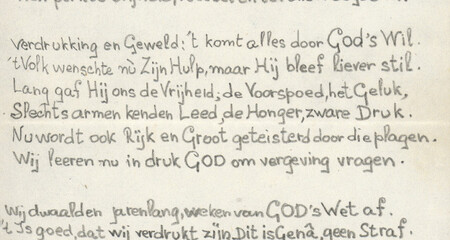 Verdrukking en Geweld: 't komt alles door God's Wil.
't Volk wenschte nù Zijn Hulp, maar Hij bleef liever stil.
Lang gaf Hij ons de Vrijheid, de Voorspoed, het Geluk,
Slechts armen kenden Leed, de Honger, zware Druk.
Nu wordt ook Rijk en Groot geteisterd door die plagen.
Wij leeren nu in druk GOD om vergeving vragen.
Wij dwaalden jarenlang, weken van GOD's Wet af.
't Is goed, dat wij verdrukt zijn, Dit is Genâ, geen Straf.